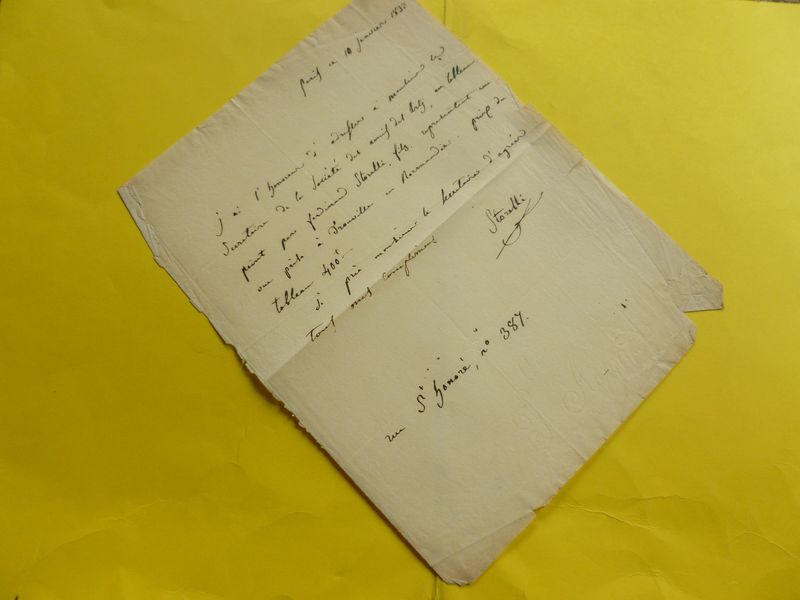 paris ce 10 janvier 1838
J'ai l'honneur d'adresser à monsieur le
Secretaire de la Société des amis des Arts, un tableau
peint par ferdinand Storelli, fils, representant une
vue prise à Trouville en Normandie. prix du
tableau 400f
Je prie monsieur le Secretaire d'agréer
tous mes complimens
Storelli
rue St honoré, no 387.